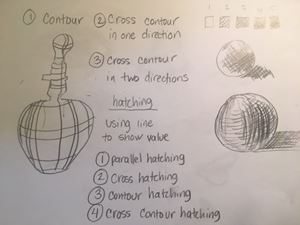 ① Contour
② Cross contour
in one direction
③ Cross contour
in two directions
hatching
using line
to show value
① parallel hatching
② Cross hatching
③ Contour hatching
④ Cross Contour hatching
1 2 3 4 5